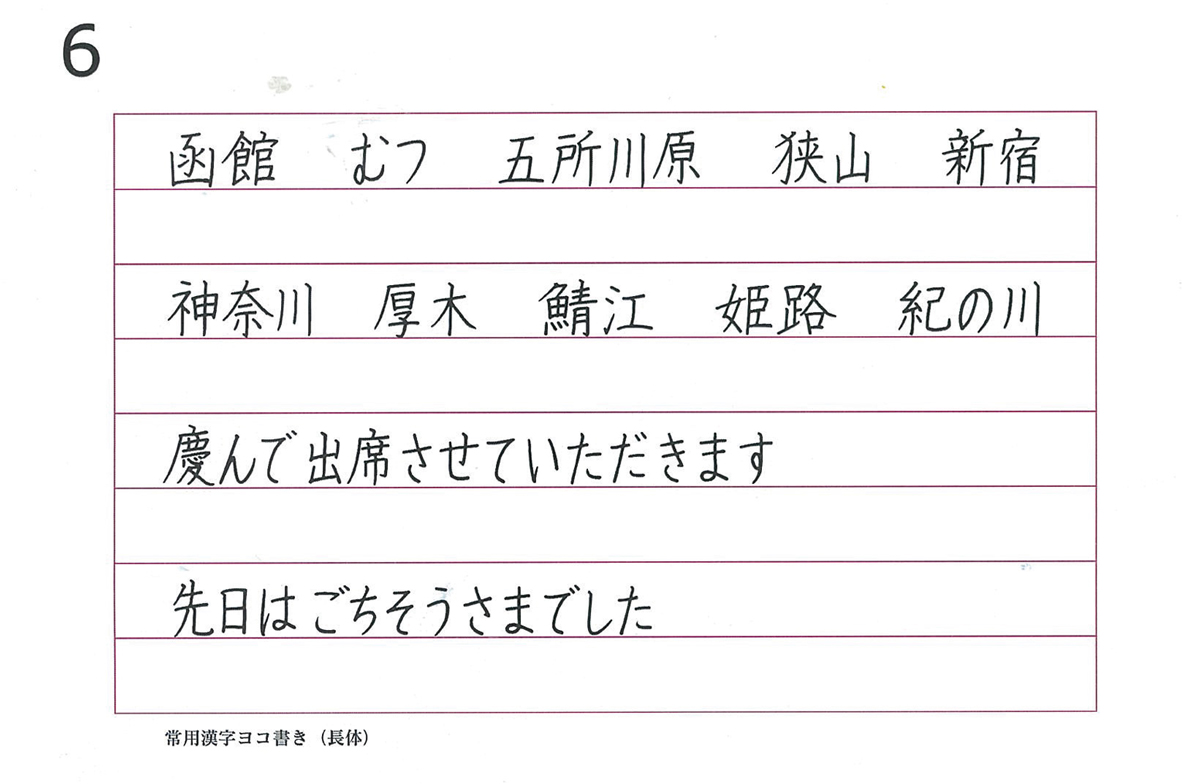 6
函館 むつ 五所川原 狭山 新宿
神奈川 厚木 鯖江 姫路 紀の川
慶んで出席させていただきます
先日はごちそうさまでした
常用漢字ヨコ書き（長体）